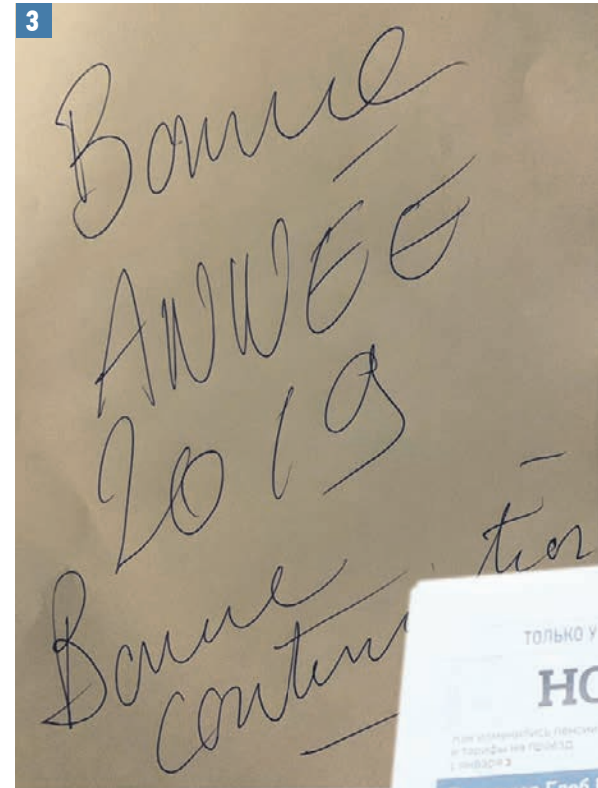 3
Bonne
ANNÉE
2019
Bonne
contin tion
ТОЛЬКО У
НО
Как изменились пенсии
и тарифы на проезд
1 января 3